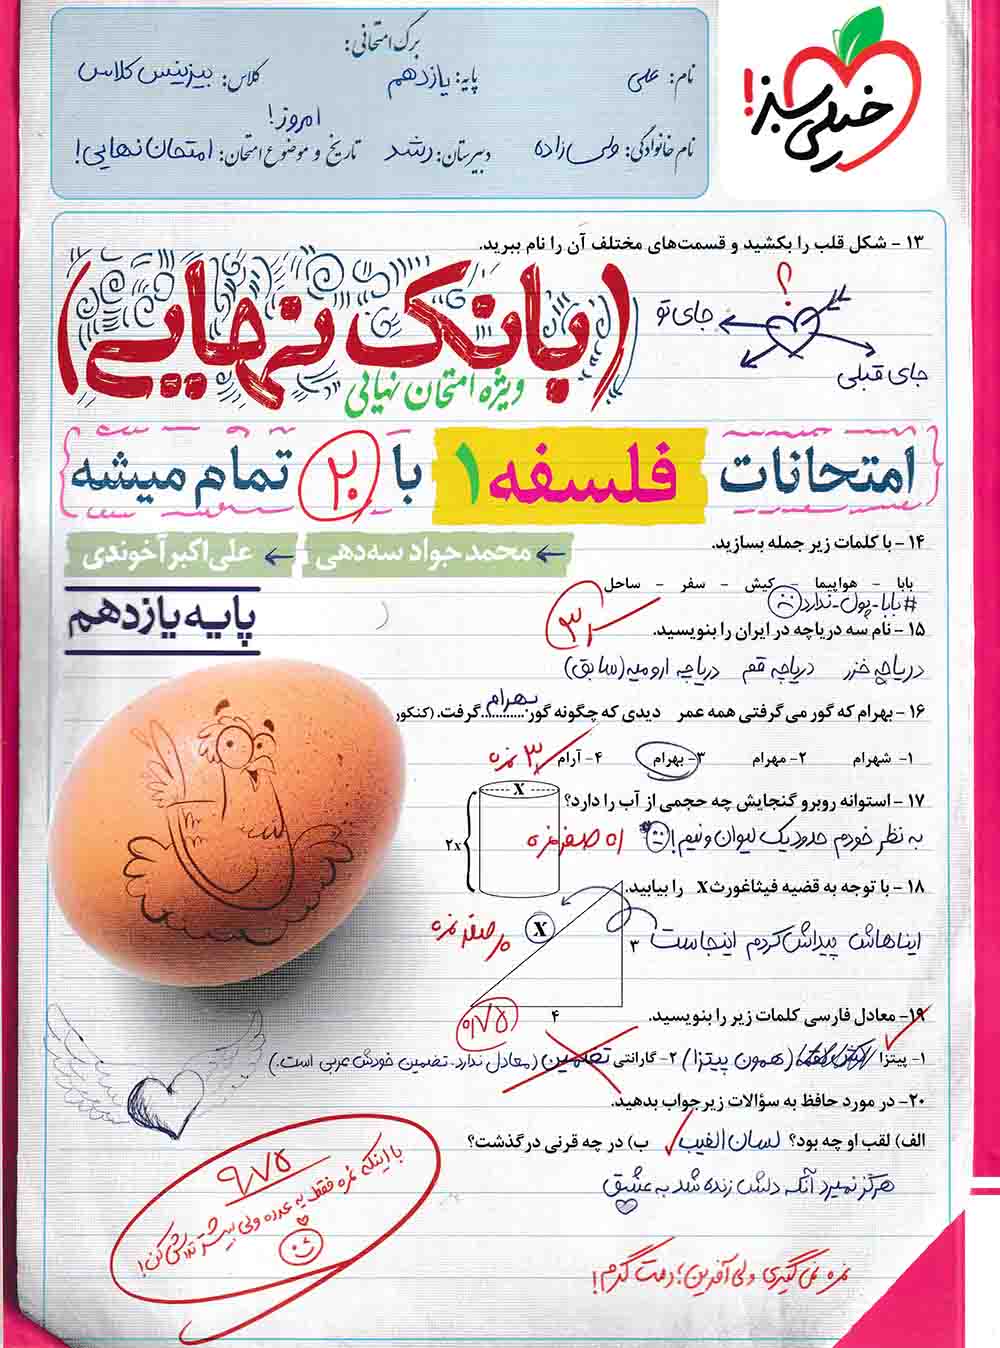 خیلی سبز!
برگ امتحانی:
نام: علی
پایه: یازدهم
کلاس: بیزینس کلاس
نام خانوادگی: ولی زاده
دبیرستان: رشد
تاریخ و موضوع امتحان: امروز! امتحان نهایی!
۱۳ - شکل قلب را بکشید و قسمت‌های مختلف آن را نام ببرید.
؟
جای تو
جای قبلی
(بانک نهایی)
ویژه امتحان نهایی
امتحانات فلسفه ۱ با ۲۰ تمام میشه
محمدجواد سه‌دهی
علی‌اکبر آخوندی
پایه یازدهم
۱۴ - با کلمات زیر جمله بسازید.
بابا - هواپیما - کیش - سفر - ساحل
#بابا-پول-ندارد
۱۵ - نام سه دریاچه در ایران را بنویسید.
دریاچه خزر دریاچه قم دریاچه ارومیه (سابق)
۱۶ - بهرام که گور می گرفتی همه عمر دیدی که چگونه گور بهرام گرفت. (کنکور
۱- شهرام ۲- مهرام ۳- بهرام ۴- آرام
۳ نمره
۱۷ - استوانه روبرو گنجایش چه حجمی از آب را دارد؟
X
۲x
به نظر خودم حدود یک لیوان و نیم!
اه صفر نمره
۱۸ - با توجه به قضیه فیثاغورث X را بیابید.
X
۳
۴
ایناهاش پیداش کردم اینجاست
صفر نمره
۰/۷۵
۱۹- معادل فارسی کلمات زیر را بنویسید.
۱- پیتزا (همون پیتزا) ۲- گارانتی تضمین (معادل ندارد. تضمین خودش عربی است.)
۲۰- در مورد حافظ به سؤالات زیر جواب بدهید.
الف) لقب او چه بود؟ لسان الغیب ب) در چه قرنی درگذشت؟
هرگز نمیرد آنکه دلش زنده شد به عشق
۹٫۷۵
با اینکه نمره فقط یه عدده ولی بیشتر تلاش کن!
نمره نمی گیری ولی آفرین؛ دمت گرم!